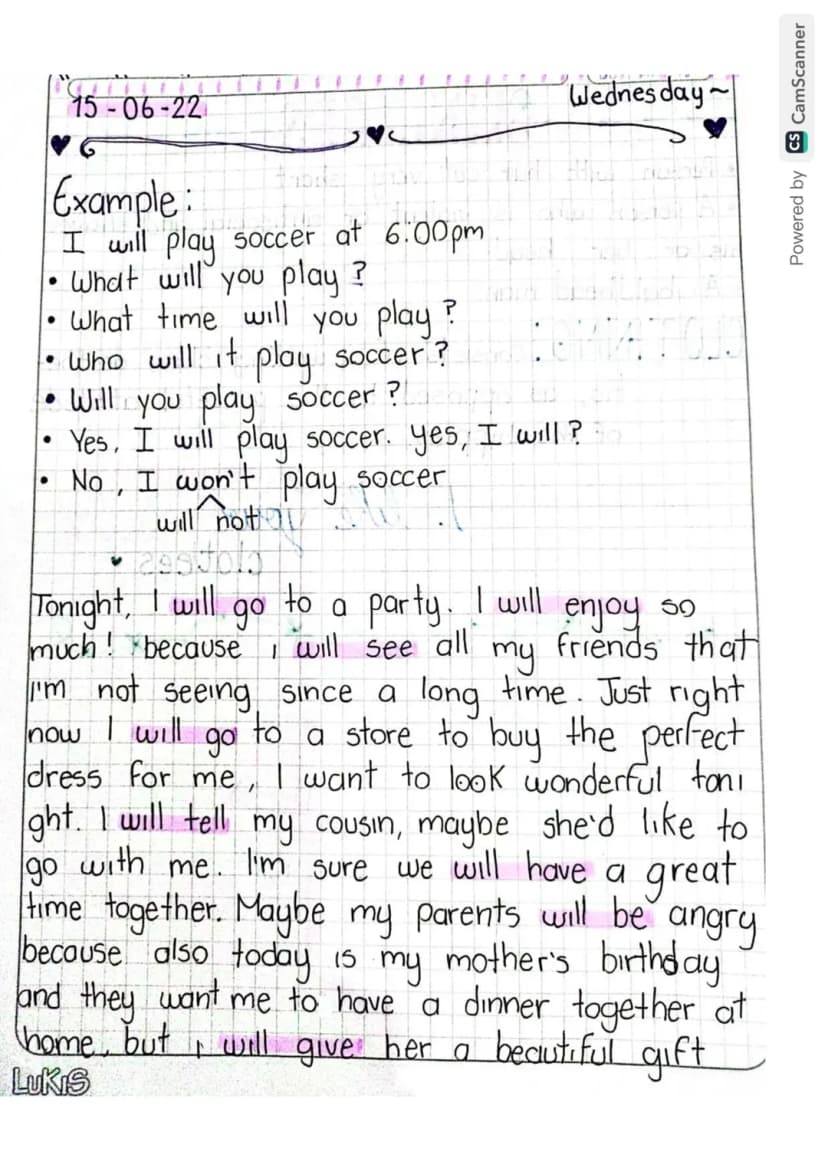 15-06-22 Wednesday~
Example:
I will play soccer at 6:00pm
• What will you play?
• What time will you play?
• Who will it play soccer?
• Will you play soccer?
• Yes, I will play soccer. Yes, I will?
• No, I won't play soccer
will not
Tonight, I will go to a party. I will enjoy so
much! because i will see all my friends that
I'm not seeing since a long time. Just right
now I will go to a store to buy the perfect
dress for me, I want to look wonderful toni
ght. I will tell my cousin, maybe she'd like to
go with me. I'm sure we will have a great
time together. Maybe my parents will be angry
because also today is my mother's birthday
and they want me to have a dinner together at
home, but i will give her a beautiful gift
LUKIS
Powered by CS CamScanner